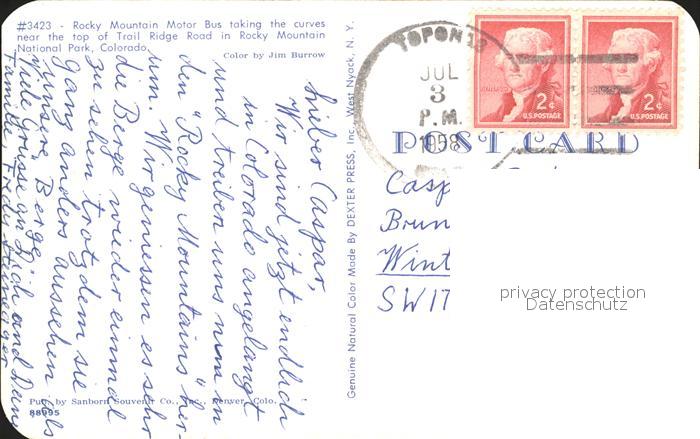 #3423 - Rocky Mountain Motor Bus taking the curves
near the top of Trail Ridge Road in Rocky Mountain
National Park, Colorado.
Color by Jim Burrow
Lieber Caspar,
Wir sind jetzt endlich
in Colorado angelangt
und treiben uns nun in
den "Rocky Mountains" her-
um. Wir geniessen es sehr
die Berge wieder einmal
zu sehen trotzdem sie
ganz anders aussehen als
unsere Berge.
Viele Grüsse an Dich und Deine
Familie Fredi
Pub. by Sanborn Souvenir Co., Inc., Denver, Colo.
88995
Genuine Natural Color Made By DEXTER PRESS, Inc. West Nyack, N. Y.
JUL
3
P.M.
1958
2¢
U.S. POSTAGE
2¢
U.S. POSTAGE
POST CARD
Casp
Brun
Wint
SWIT
privacy protection
Datenschutz